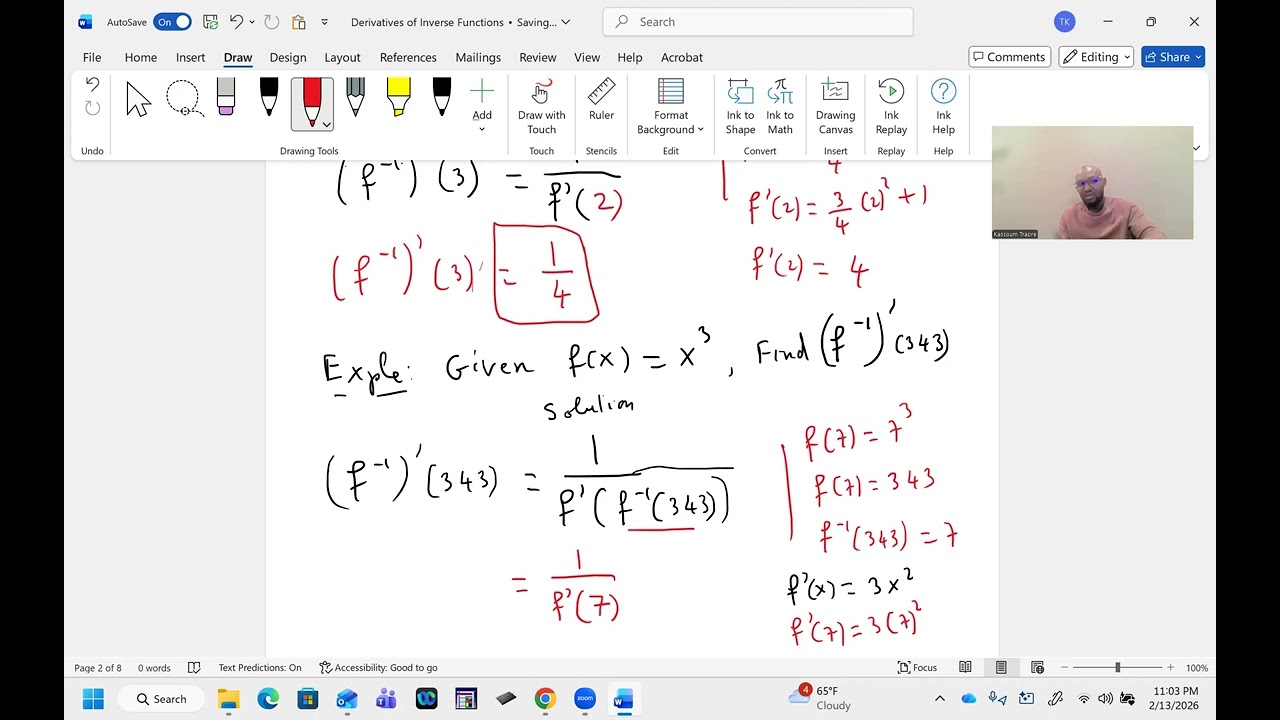 AutoSave On Derivatives of Inverse Functions • Saving... Search TK
File Home Insert Draw Design Layout References Mailings Review View Help Acrobat Comments Editing Share
Undo Add Draw with Touch Ruler Format Background Ink to Shape Ink to Math Drawing Canvas Ink Replay Ink Help
Undo Drawing Tools Touch Stencils Edit Convert Insert Replay Help
Kassoum Traore
(f⁻¹) (3) = 1/f'(2)
(f⁻¹)'(3) = 1/4
4
f'(2) = 3/4 (2)² + 1
f'(2) = 4
Exple: Given f(x) = x³, Find (f⁻¹)'(343)
Solution
(f⁻¹)'(343) = 1/f'(f⁻¹(343))
= 1/f'(7)
f(7) = 7³
f(7) = 343
f⁻¹(343) = 7
f'(x) = 3x²
f'(7) = 3(7)²
Page 2 of 8 0 words Text Predictions: On Accessibility: Good to go Focus 100%
Search zoom 4 65°F Cloudy 11:03 PM 2/13/2026